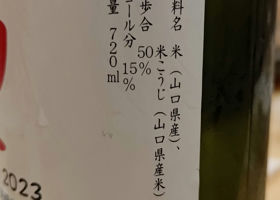 料名 米(山口県産)、
米こうじ(山口県産米)
歩合 50%
ール分 15%
量 720ml
2023